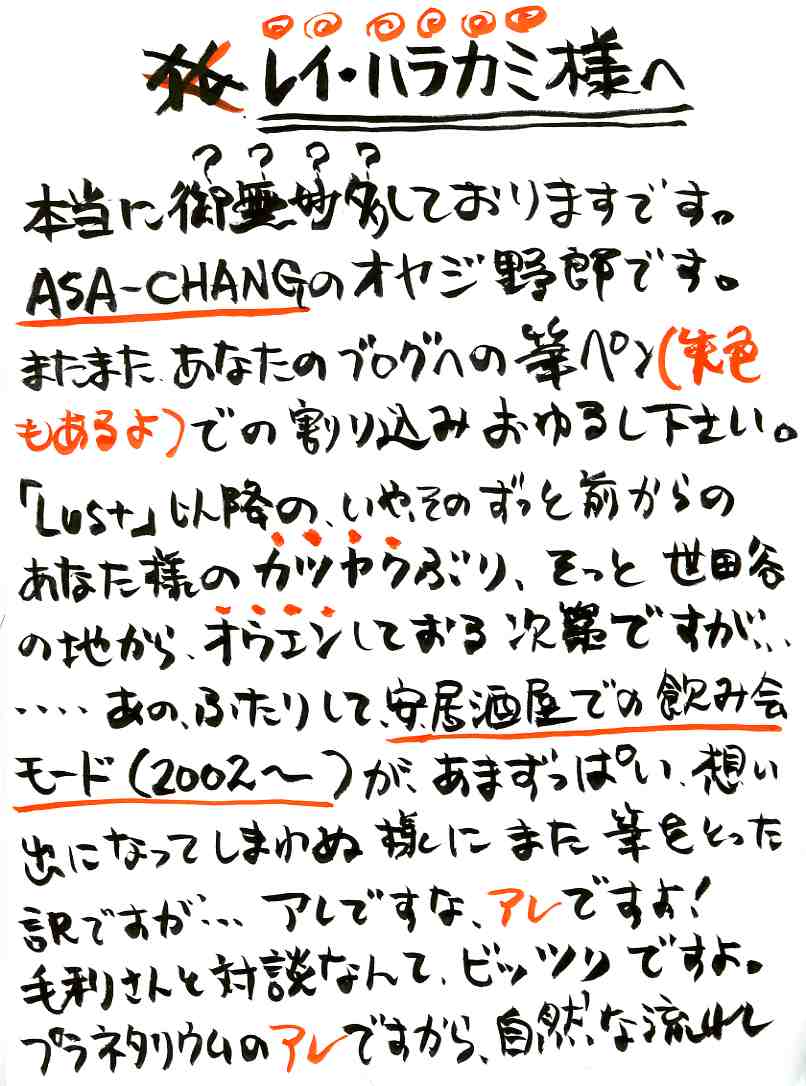 レイ・ハラカミ様へ
? ? ? ?
本当に御無妙多しておりますです。
ASA-CHANGのオヤジ野郎です。
またまた、あなたのブログへの筆ペン(朱色
もあるよ)での割り込みおゆるし下さい。
「Lust」以降の、いや、そのずっと前からの
あなた様のカツヤクぶり、そっと世田谷
の地から、オウエンしておる次第ですが…
‥‥あの、ふたりして、安居酒屋での飲み会
モード(2002〜)が、あまずっぱい、想い
出になってしまわぬ様にまた筆をとった
訳ですが… アレですな、アレですよ!
毛利さんと対談なんて、ビッツリですよ。
プラネタリウムのアレですから、自然な流れで